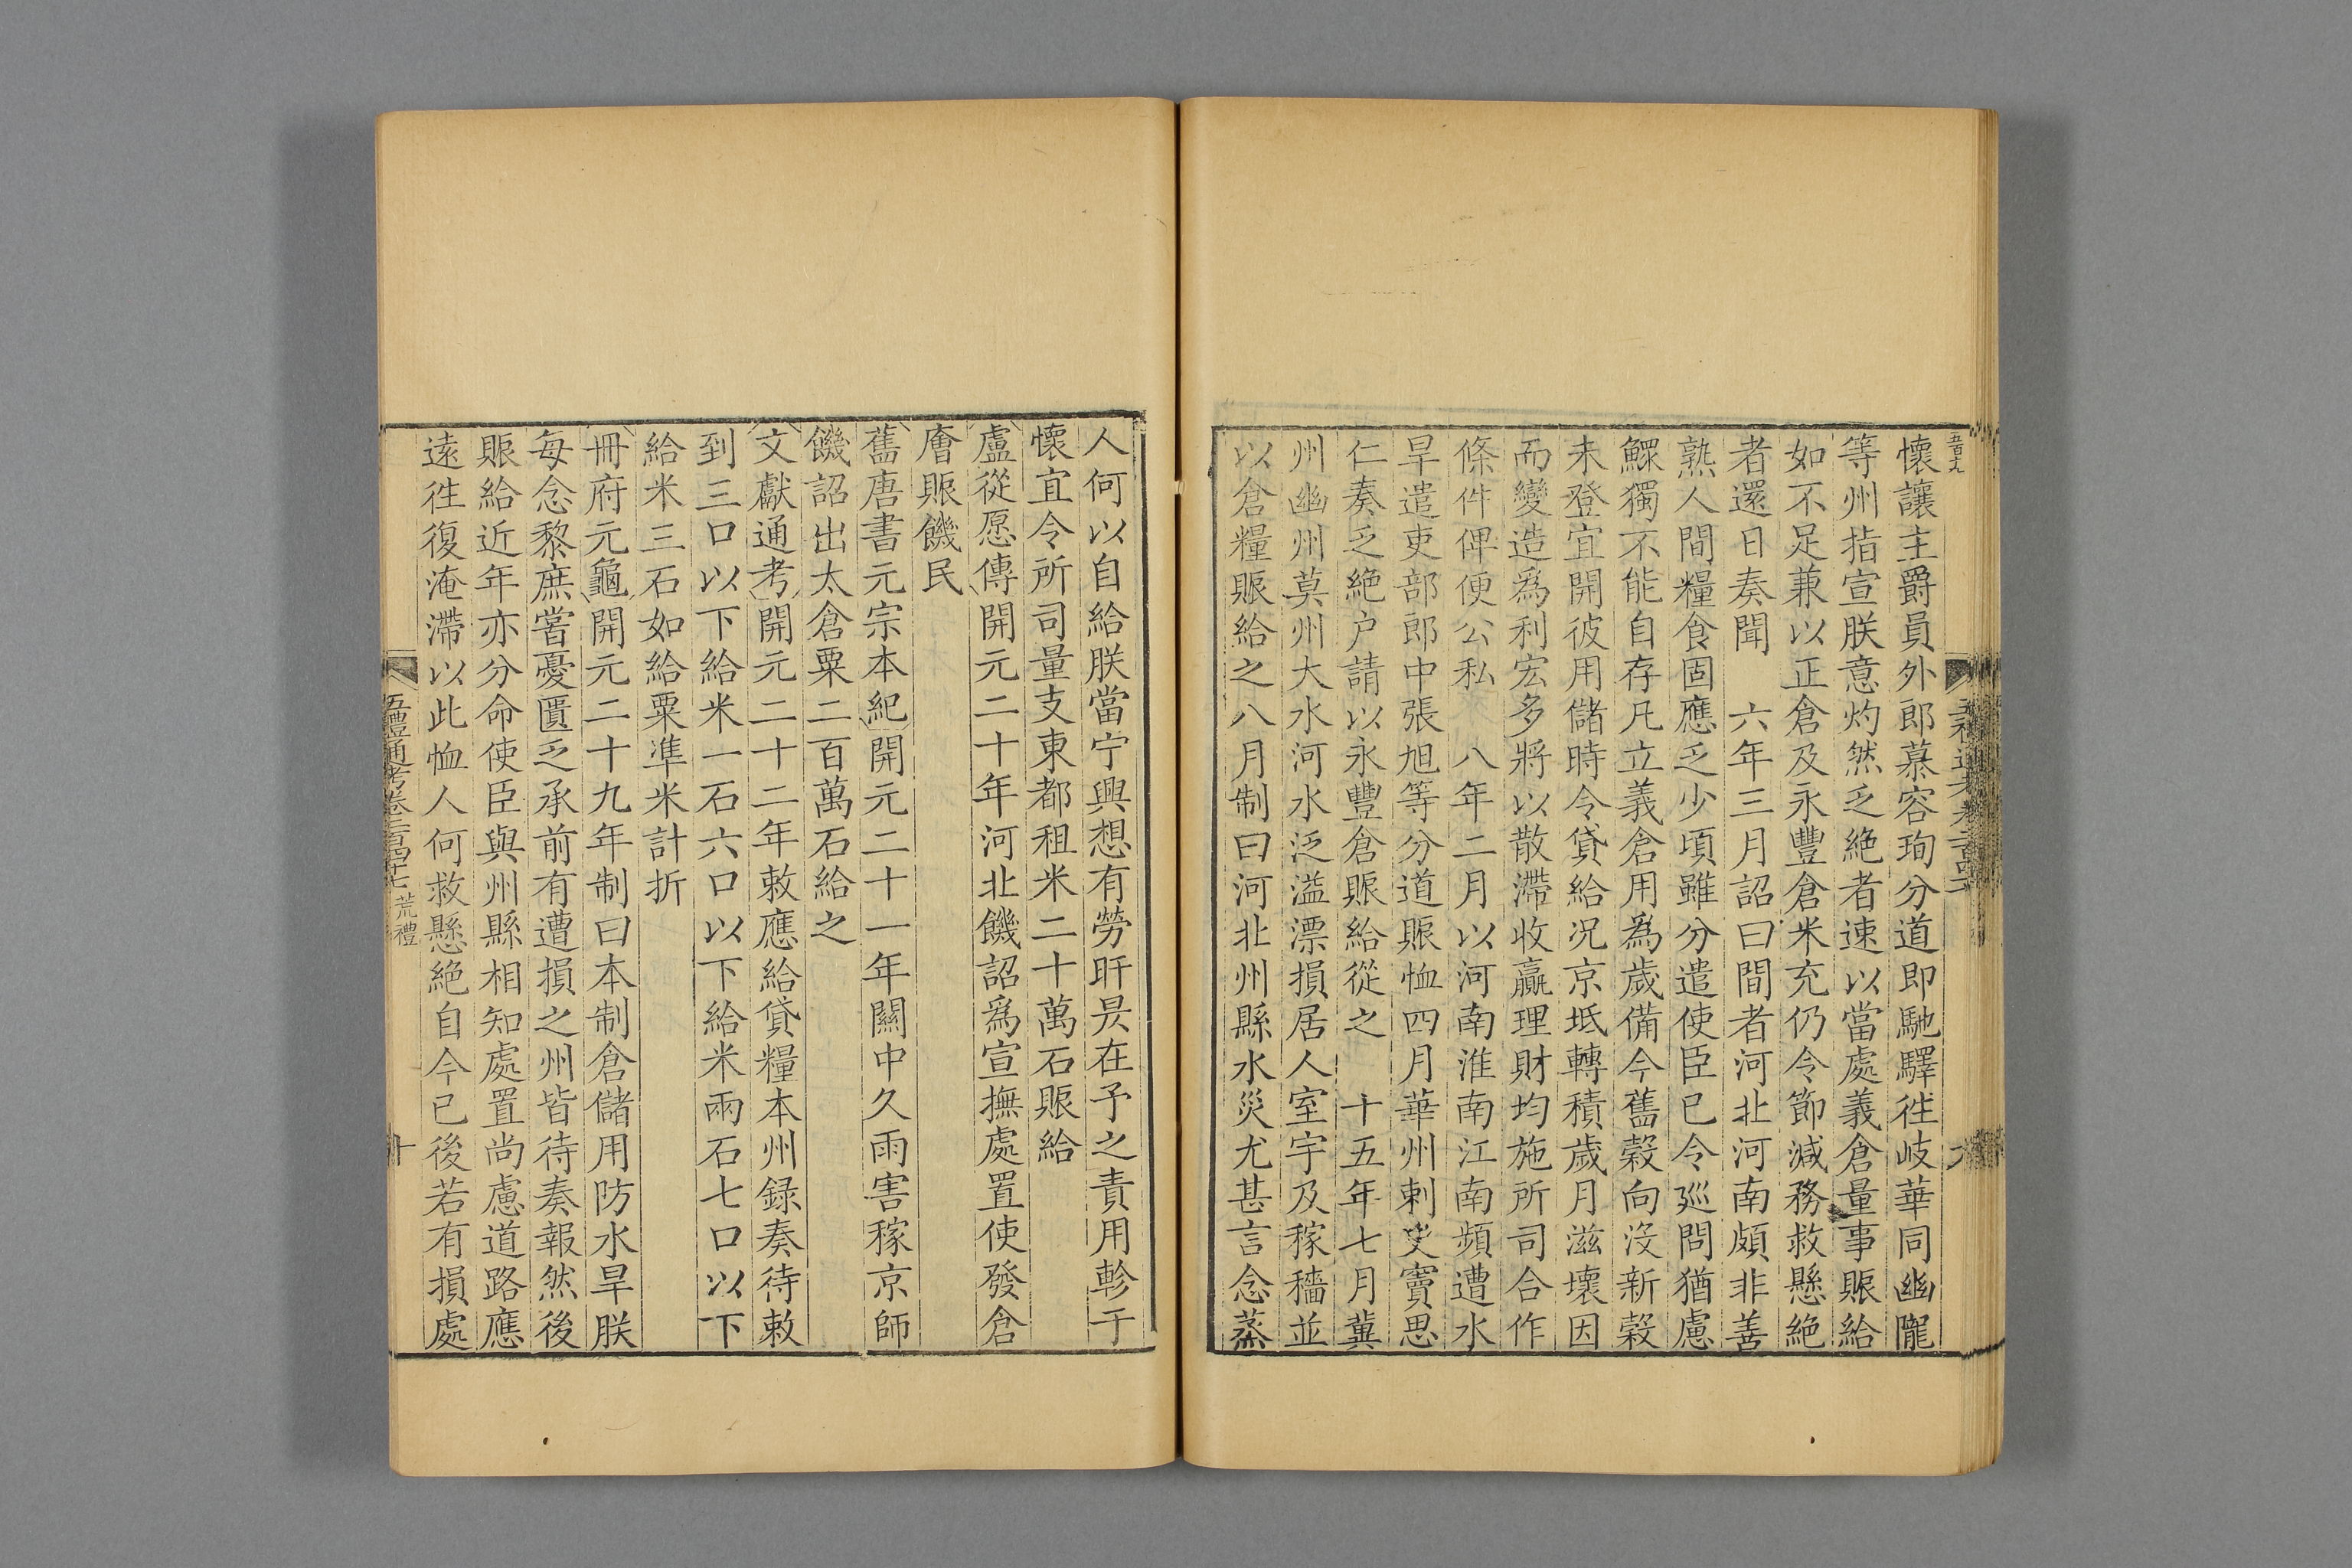 懷讓主爵員外郎慕容珣分道即馳驛徃岐華同豳隴
等州指宣朕意灼然乏絶者速以當處義倉量事賑給
如不足兼以正倉及永豐倉米充仍令節減務救懸絶
者還日奏聞　六年三月詔曰間者河北河南頗非善
熟人間糧食固應乏少頃雖分遣使臣已令廵問猶慮
鰥獨不能自存凡立義倉用爲歲備今舊榖向沒新榖
未登宜開彼用儲時令貸給况京坻轉積歲月滋壞因
而變造爲利宏多將以散滯收贏理財均施所司合作
條件俾便公私　八年二月以河南淮南江南頻遭水
旱遣吏部郎中張旭等分道賑恤四月華州刺史竇思
仁奏乏絶户請以永豐倉賑給從之　十五年七月冀
州幽州莫州大水河水泛溢漂損居人室宇及稼穡並
以倉糧賑給之八月制曰河北州縣水災尤甚言念蒸
人何以自給朕當宁興想有勞旰昃在予之責用軫于
懷宜令所司量支東都租米二十萬石賑給
盧從愿傳開元二十年河北饑詔爲宣撫處置使發倉
廥賑饑民
舊唐書元宗本紀開元二十一年關中久雨害稼京師
饑詔出太倉粟二百萬石給之
文獻通考開元二十二年敕應給貸糧本州録奏待敕
到三口以下給米一石六口以下給米兩石七口以下
給米三石如給粟凖米計折
冊府元龜開元二十九年制曰本制倉儲用防水旱朕
每念黎庶嘗憂匱乏承前有遭損之州皆待奏報然後
賑給近年亦分命使臣與州縣相知處置尚慮道路應
遠徃復淹滯以此恤人何救懸絶自今已後若有損處
五禮通考卷二百四十七 荒禮
十